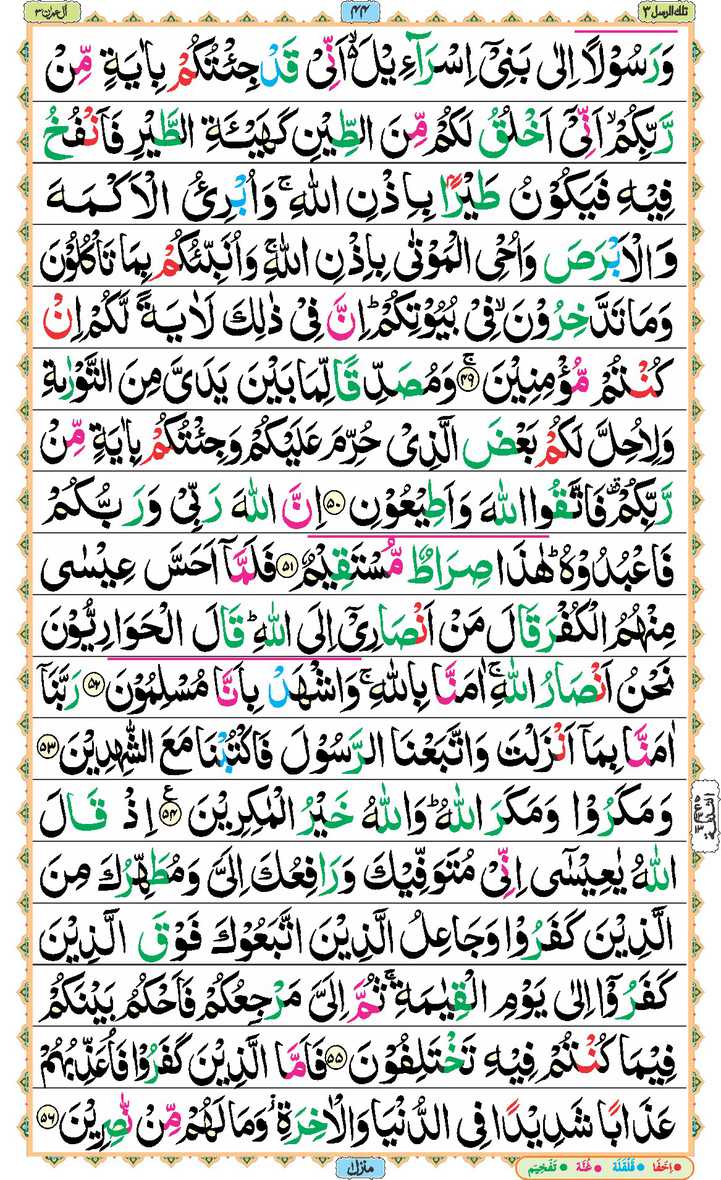 تلك الرسل ٣
٤٤
اٰل عمرٰن ٣
وَرَسُوْلًا اِلٰى بَنِيْۤ اِسْرَآءِيْلَ ۙ۬ اَنِّيْ قَدْ جِئْتُكُمْ بِاٰيَةٍ مِّنْ
رَّبِّكُمْ ۙ اَنِّيْۤ اَخْلُقُ لَكُمْ مِّنَ الطِّيْنِ كَهَيْـَٔةِ الطَّيْرِ فَاَنْفُخُ
فِيْهِ فَيَكُوْنُ طَيْرًۢا بِاِذْنِ اللّٰهِ ۚ وَاُبْرِئُ الْاَكْمَهَ
وَالْاَبْرَصَ وَاُحْيِ الْمَوْتٰى بِاِذْنِ اللّٰهِ ۚ وَاُنَبِّئُكُمْ بِمَا تَاْكُلُوْنَ
وَمَا تَدَّخِرُوْنَ ۙ فِيْ بُيُوْتِكُمْ ؕ اِنَّ فِيْ ذٰلِكَ لَاٰيَةً لَّكُمْ اِنْ
كُنْتُمْ مُّؤْمِنِيْنَ ۚ ﴿۴۹﴾ وَمُصَدِّقًا لِّمَا بَيْنَ يَدَيَّ مِنَ التَّوْرٰىةِ
وَلِاُحِلَّ لَكُمْ بَعْضَ الَّذِيْ حُرِّمَ عَلَيْكُمْ وَجِئْتُكُمْ بِاٰيَةٍ مِّنْ
رَّبِّكُمْ ۫ فَاتَّقُوا اللّٰهَ وَاَطِيْعُوْنِ ﴿۵۰﴾ اِنَّ اللّٰهَ رَبِّيْ وَرَبُّكُمْ
فَاعْبُدُوْهُ ؕ هٰذَا صِرَاطٌ مُّسْتَقِيْمٌ ﴿۵۱﴾ فَلَمَّاۤ اَحَسَّ عِيْسٰى
مِنْهُمُ الْكُفْرَ قَالَ مَنْ اَنْصَارِيْۤ اِلَى اللّٰهِ ؕ قَالَ الْحَوَارِيُّوْنَ
نَحْنُ اَنْصَارُ اللّٰهِ ۚ اٰمَنَّا بِاللّٰهِ ۚ وَاشْهَدْ بِاَنَّا مُسْلِمُوْنَ ﴿۵۲﴾ رَبَّنَاۤ
اٰمَنَّا بِمَاۤ اَنْزَلْتَ وَاتَّبَعْنَا الرَّسُوْلَ فَاكْتُبْنَا مَعَ الشّٰهِدِيْنَ ﴿۵۳﴾
وَمَكَرُوْا وَمَكَرَ اللّٰهُ ؕ وَاللّٰهُ خَيْرُ الْمٰكِرِيْنَ ﴿۵۴﴾ ع اِذْ قَالَ
اللّٰهُ يٰعِيْسٰۤى اِنِّيْ مُتَوَفِّيْكَ وَرَافِعُكَ اِلَيَّ وَمُطَهِّرُكَ مِنَ
الَّذِيْنَ كَفَرُوْا وَجَاعِلُ الَّذِيْنَ اتَّبَعُوْكَ فَوْقَ الَّذِيْنَ
كَفَرُوْۤا اِلٰى يَوْمِ الْقِيٰمَةِ ۚ ثُمَّ اِلَيَّ مَرْجِعُكُمْ فَاَحْكُمُ بَيْنَكُمْ
فِيْمَا كُنْتُمْ فِيْهِ تَخْتَلِفُوْنَ ﴿۵۵﴾ فَاَمَّا الَّذِيْنَ كَفَرُوْا فَاُعَذِّبُهُمْ
عَذَابًا شَدِيْدًا فِي الدُّنْيَا وَالْاٰخِرَةِ ؗ وَمَا لَهُمْ مِّنْ نّٰصِرِيْنَ ﴿۵۶﴾
منزل ١
اِخفَا قَلْقَلَة غُنَّة تَفْخِيم